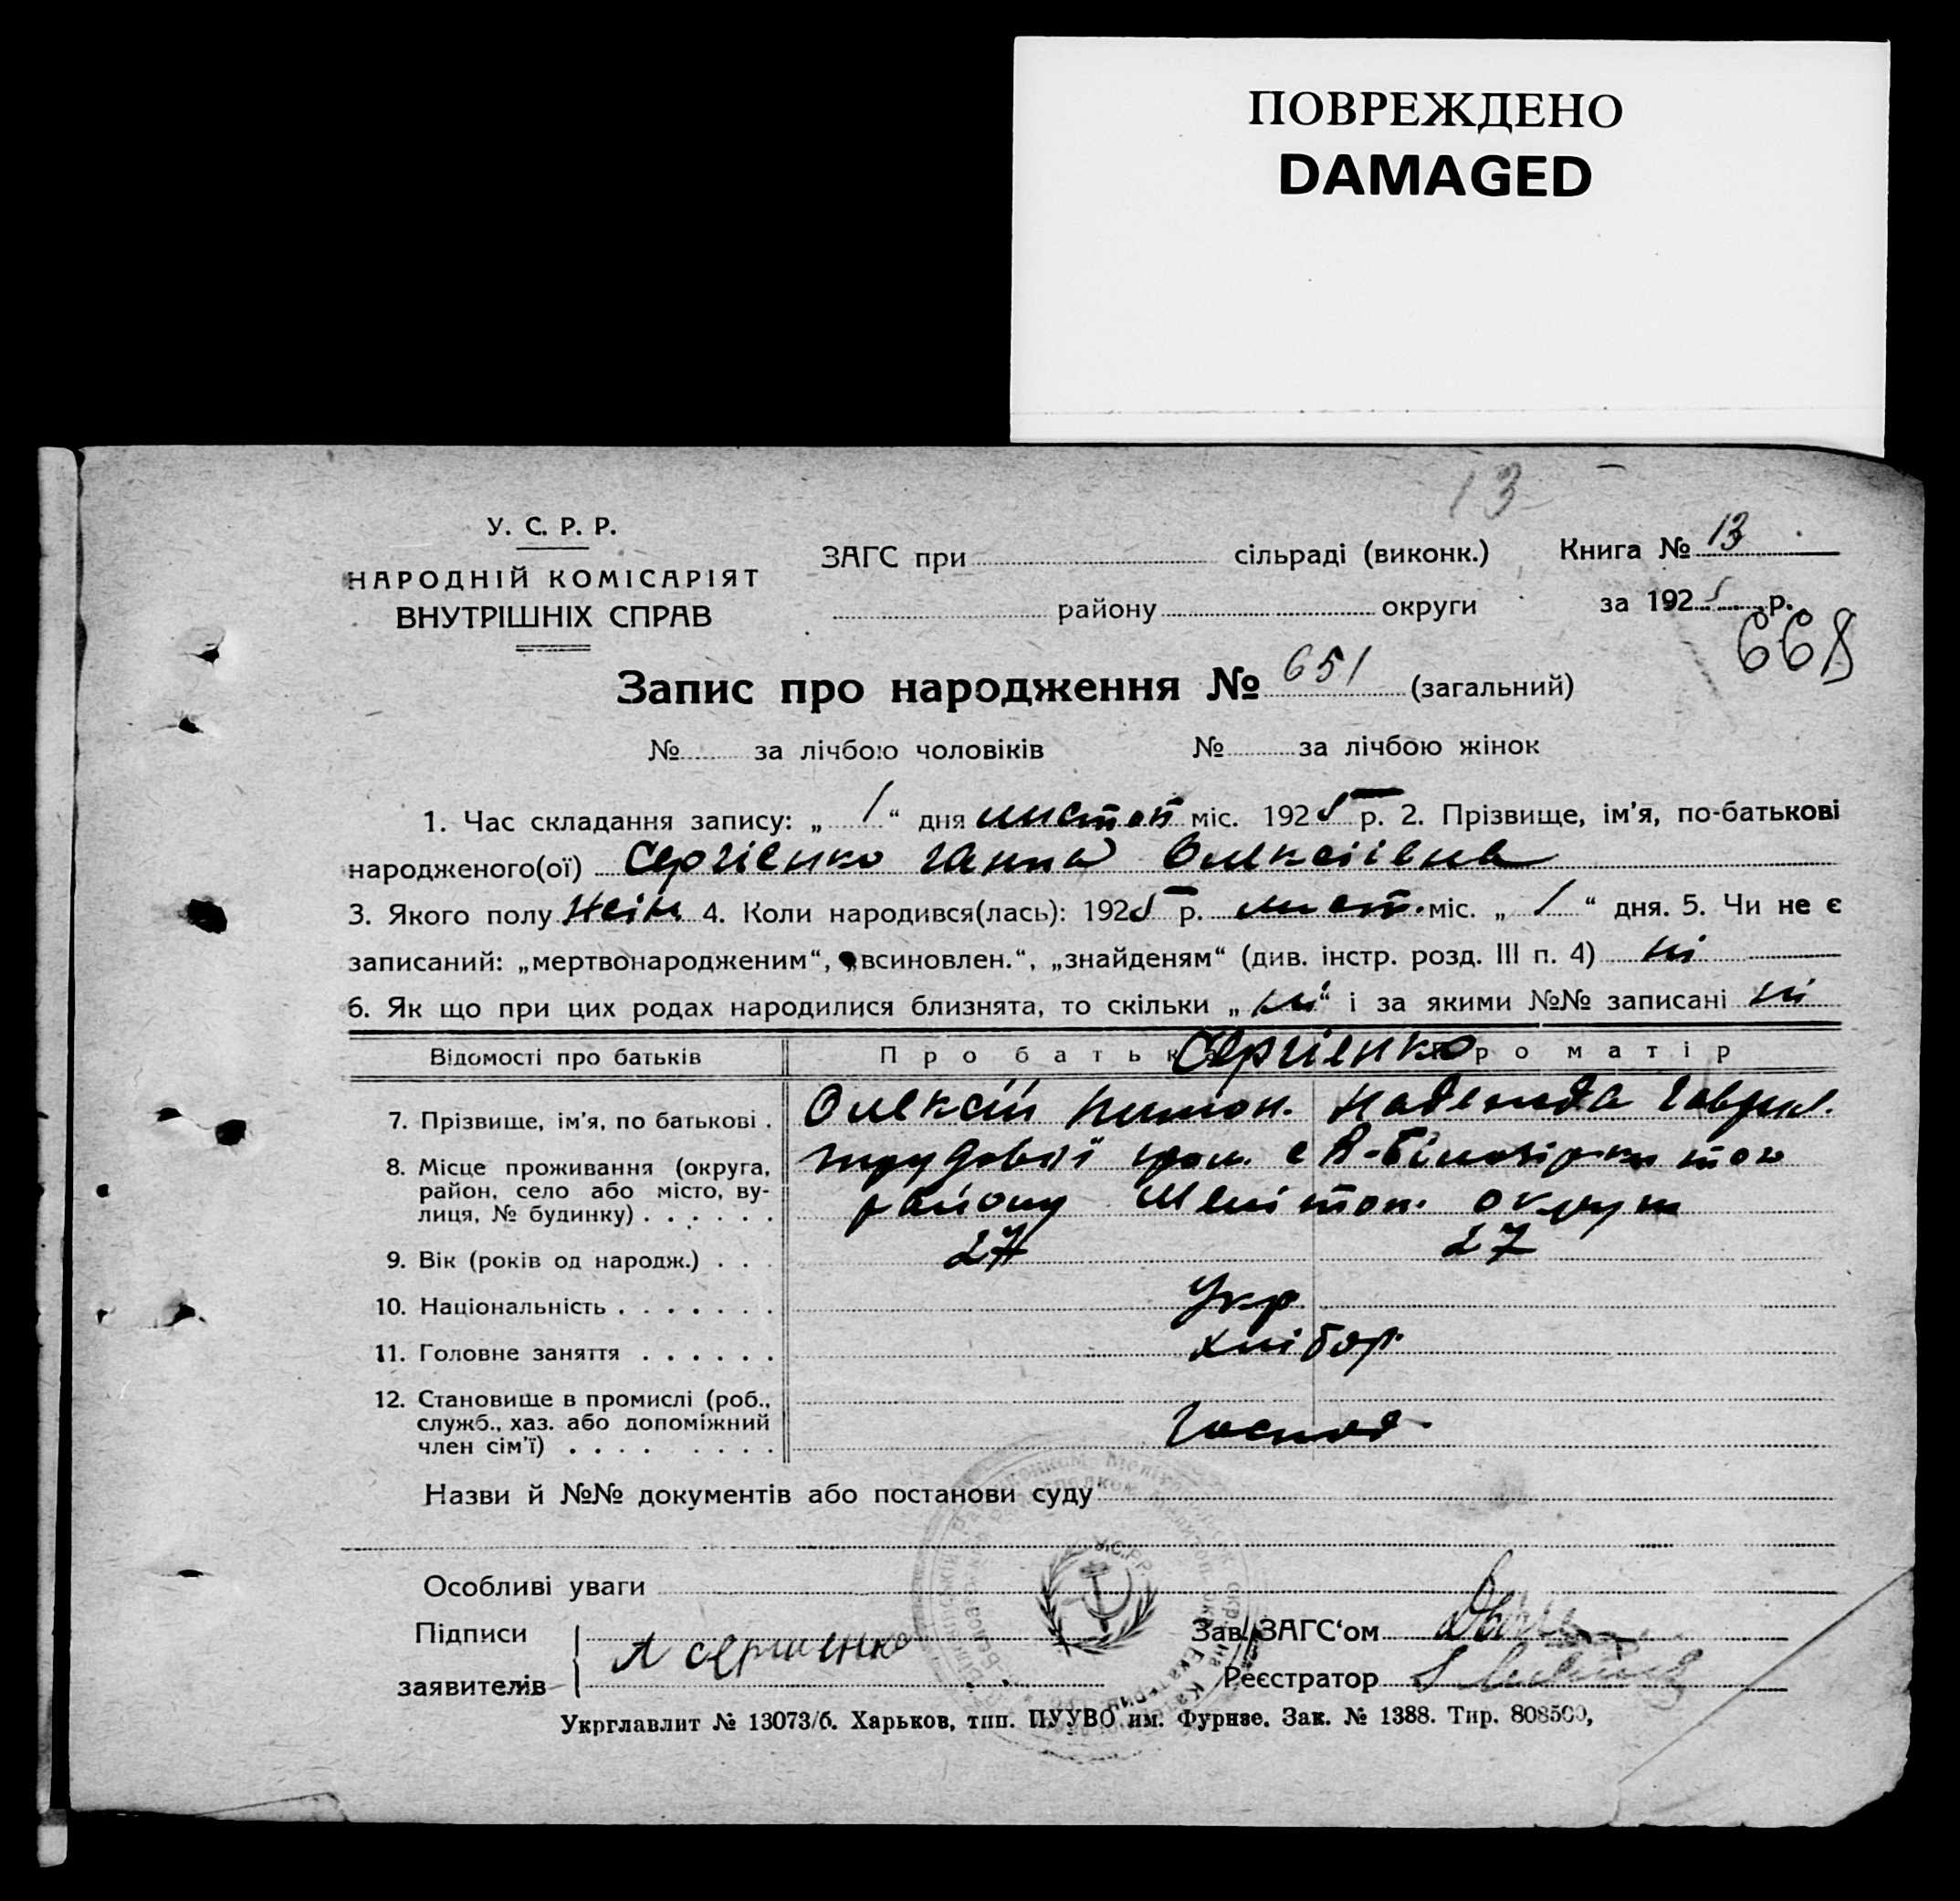 ПОВРЕЖДЕНО
DAMAGED
13
У. С. Р. Р.
НАРОДНІЙ КОМІСАРІЯТ
ВНУТРІШНІХ СПРАВ
ЗАГС при сільраді (виконк.)
району округи
Книга № 13
за 1925 р.
668
Запис про народження № 651 (загальний)
№ за лічбою чоловіків № за лічбою жінок
1. Час складання запису: „ 1 “ дня листоп міс. 1925 р. 2. Прізвище, ім'я, по-батькові
народженого(ої) Сергієнко Ганна Олексіівна
3. Якого полу жін. 4. Коли народився(лась): 1925 р. лист. міс. „ 1 “ дня. 5. Чи не є
записаний: „мертвонародженим“, „всиновлен.“, „знайденям“ (див. інстр. розд. III п. 4) ні
6. Як що при цих родах народилися близнята, то скільки „ ні “ і за якими №№ записані ні
Відомості про батьків Про батька Сергієнко Про матір
7. Прізвище, ім'я, по батькові . Олексій Надежда Гаврил.
8. Місце проживання (округа, трудової гром. с В-Білозірки того
район, село або місто, ву-
лиця, № будинку) . . . . . . району Мелітоп. округи
9. Вік (років од народж.) . . . 27 27
10. Національність . . . . . . . Укр
11. Головне заняття . . . . . . хлібор.
12. Становище в промислі (роб.,
служб., хаз. або допоміжний
член сім'ї) . . . . . . . . Господ.
Назви й №№ документів або постанови суду
Особливі уваги
У.С.Р.Р.
Підписи
заявителів
А сергиенко
Зав. ЗАГС‘ом
Реєстратор
Укрглавлит № 13073/б. Харьков, тип. ПУУВО им. Фурнзе. Зак. № 1388. Тир. 808500,